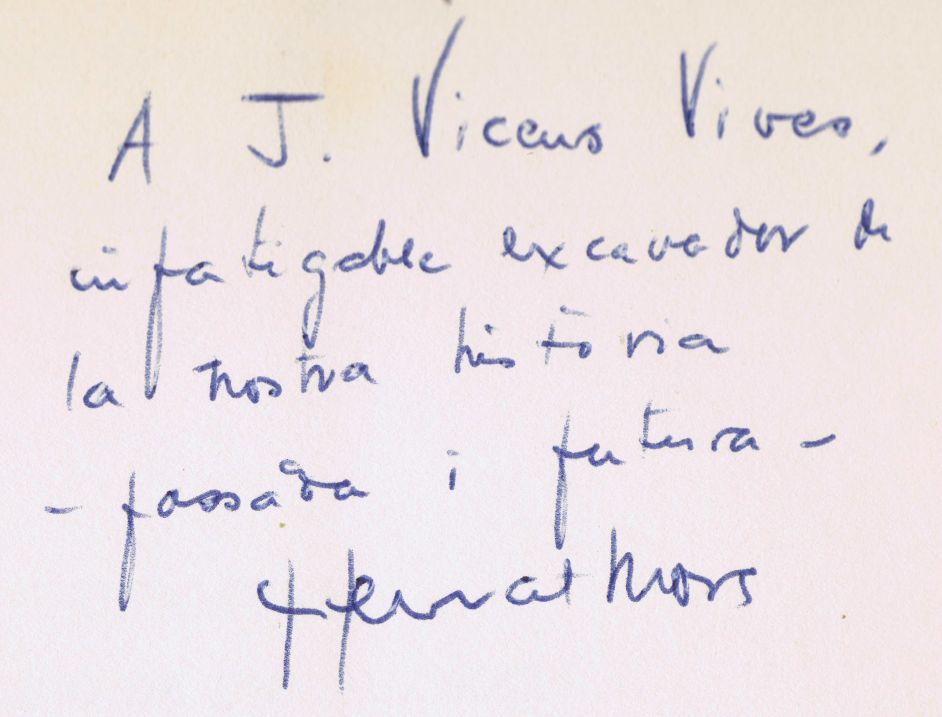 A J. Vicens Vives,
infatigable excavador de
la nostra història
- passada i futura -